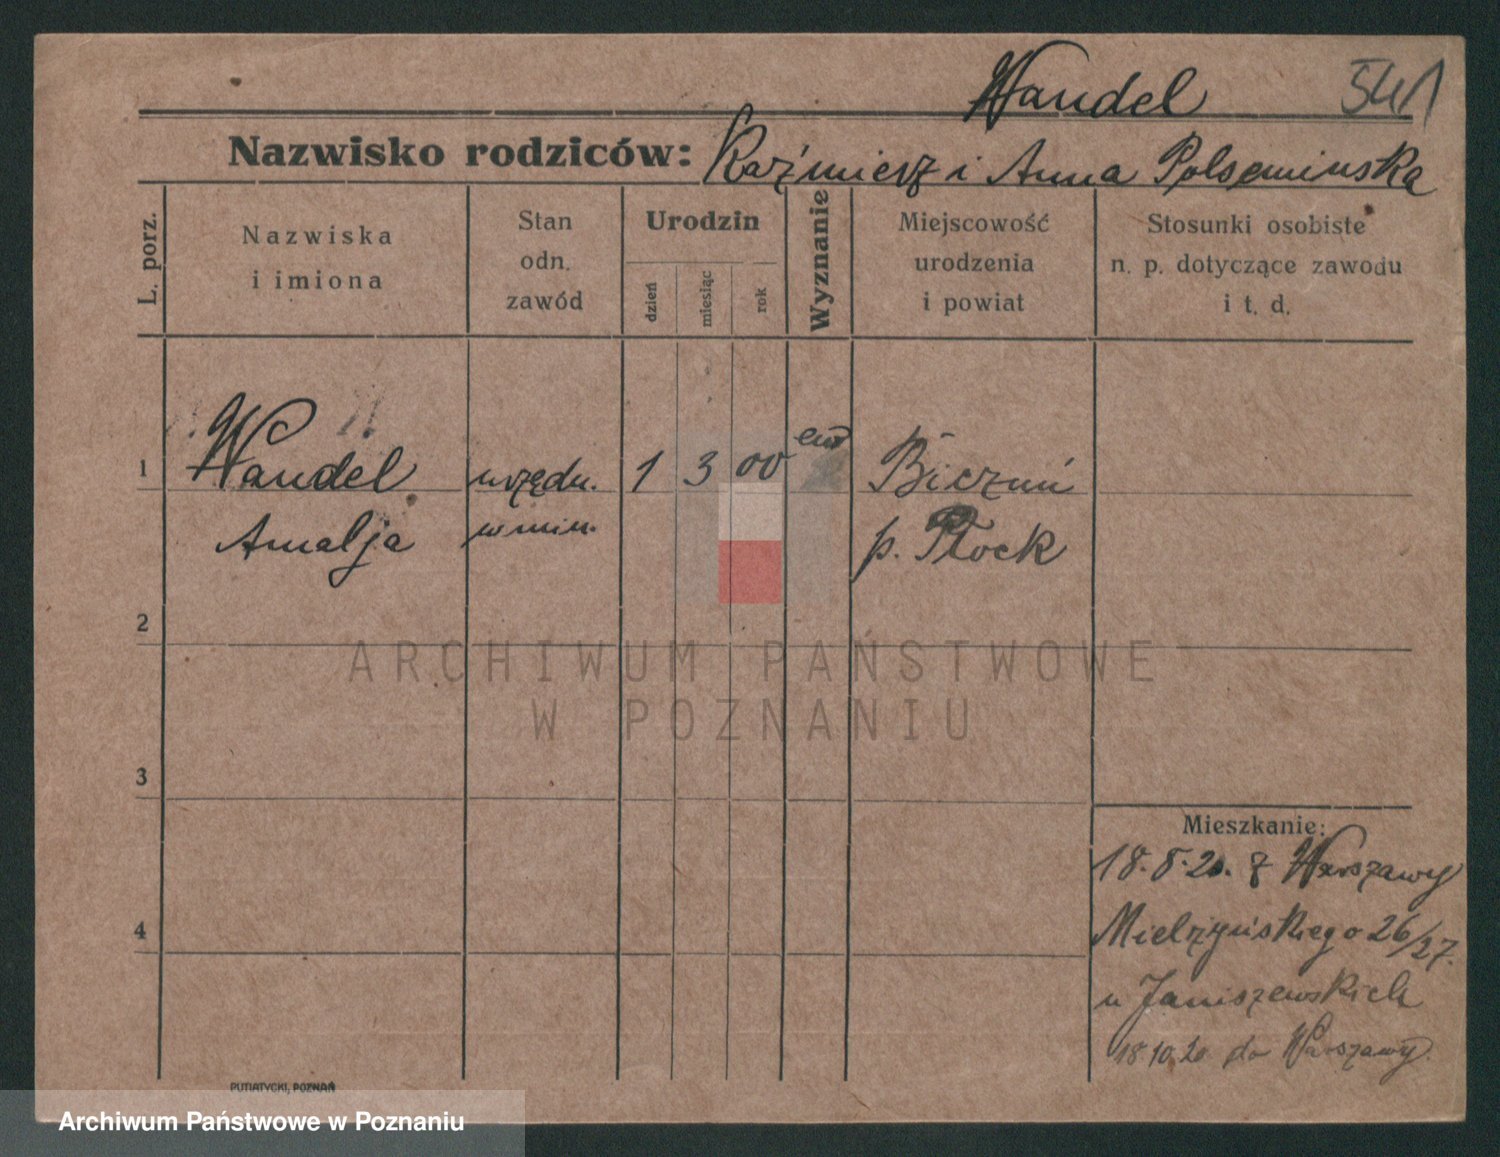 Wandel 541
Nazwisko rodziców: Kaźmierz i Anna
L. porz.
Nazwiska
i imiona
Stan
odn.
zawód
Urodzin
dzień
miesiąc
rok
Wyznanie
Miejscowość
urodzenia
i powiat
Stosunki osobiste
n. p. dotyczące zawodu
i t. d.
1 Wandel urzędn. 1 3 00 ew Bieżuń
Amalja w min. p. Płock
2
3
4
Mieszkanie:
18.8.20. z Warszawy
Mielżyńskiego 26/27.
u Janiszewskich
18.10.20 do Warszawy.
PUTIATYCKI, POZNAŃ
ARCHIWUM PAŃSTWOWE
W POZNANIU
Archiwum Państwowe w Poznaniu